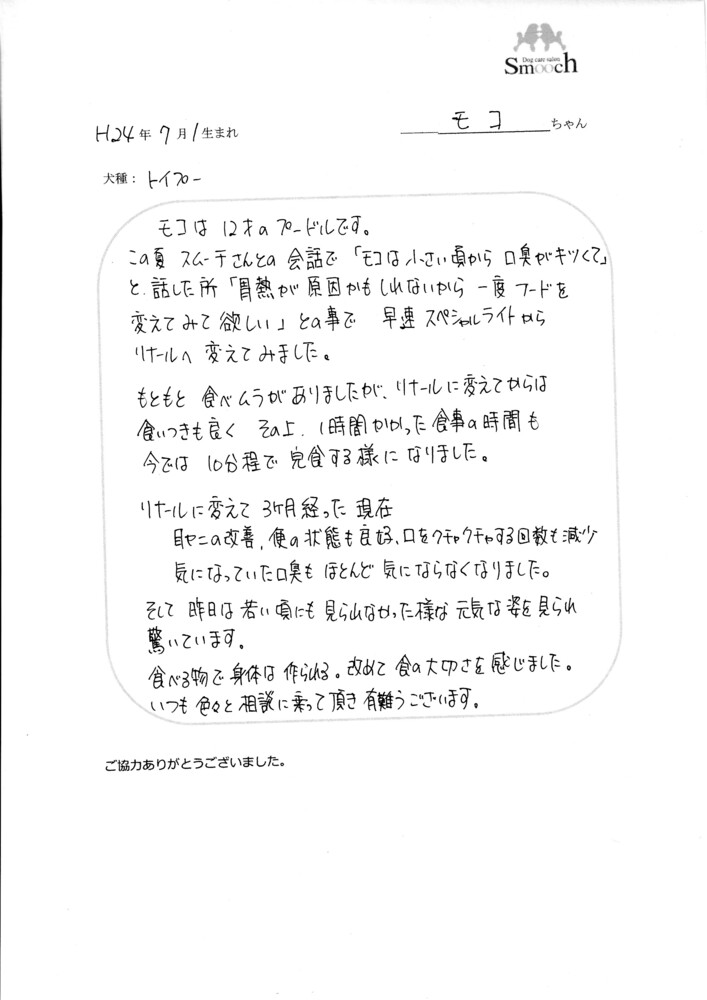 Dog care salon
Smooch
H24年 7月1生まれ
モコ ちゃん
犬種：トイプー
モコは 12才のプードルです。
この夏 スムーチさんとの 会話で 「モコは小さい頃から 口臭がキツくて」
と.話した所 「胃熱が 原因かもしれないから 一度フードを
変えてみて欲しい」 との事で 早速 スペシャルライトから
リナールへ 変えてみました。
もともと 食べムラがありましたが、リナールに変えてからは
食いつきも良く その上. 1時間かかった 食事の時間も
今では 10分程で 完食する様に なりました。
リナールに変えて 3ヶ月経った 現在
目ヤニの改善, 便の状態も良好、口をクチャクチャする回数も減少
気になっていた口臭も ほとんど 気にならなくなりました。
そして 昨日は 若い頃にも 見られなかった様な 元気な姿を見られ
驚いています。
食べる物で 身体は 作られる。改めて 食の大切さを 感じました。
いつも 色々と 相談に乗って頂き 有難うございます。
ご協力ありがとうございました。